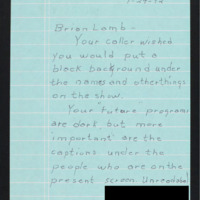 Brian Lamb-
Your caller wished
you would put a
black background under
the names and other things
on the show.
Your "future programs
are dark, but more
important are the
captions under the
people who are on the
present screen. Unreadable!